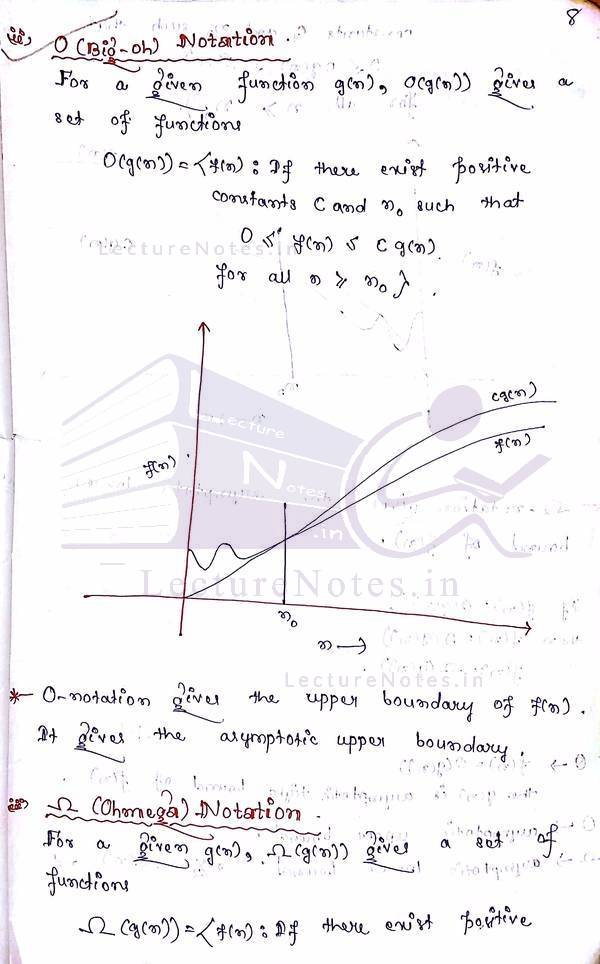 8
ii) O (Big-oh) Notation.
For a given function g(n), O(g(n)) gives a
set of functions
O(g(n)) = < f(n) : If there exist positive
constants C and n₀ such that
0 ≤ f(n) ≤ C g(n)
LectureNotes.in
for all n ≥ n₀ }.
cg(n)
f(n)
f(n)
Lecture
Notes
.in
LectureNotes.in
n₀
n →
LectureNotes.in
* O-notation gives the upper boundary of f(n).
It gives the asymptotic upper boundary.
iii) Ω (Ohmega) Notation.
For a given g(n), Ω(g(n)) gives a set of
functions
Ω(g(n)) = < f(n) : If there exist positive